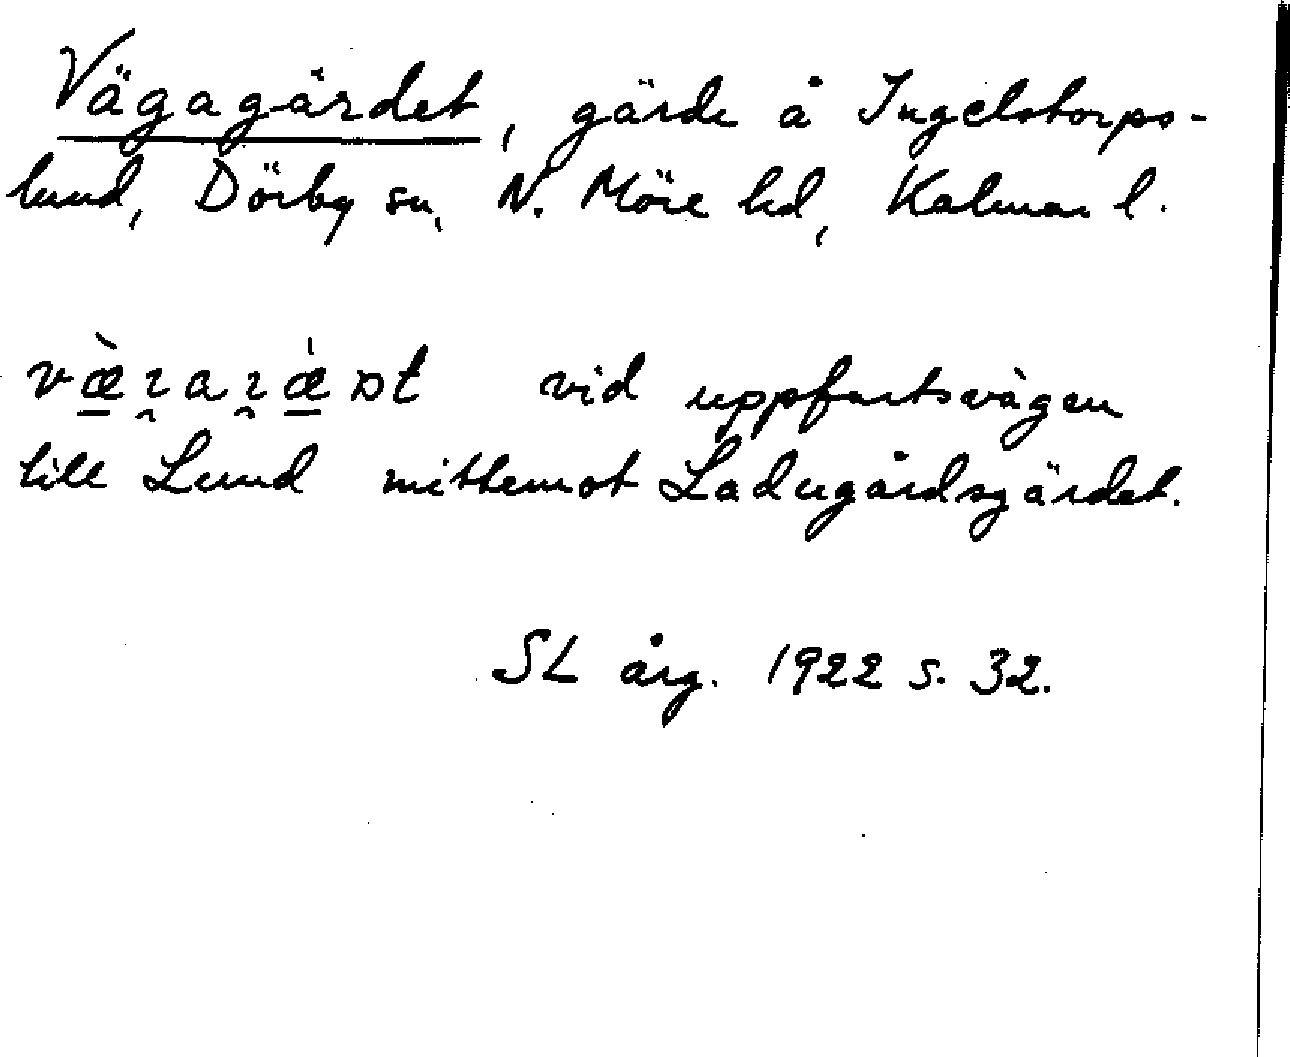 Vägagärdet, gärde å Ingelstorps-
lund, Dörby sn, N. Möre hd, Kalmar l.
vid uppfartsvägen
till Lund mittemot Ladugårdsgärdet.
SL årg. 1922 s. 32.